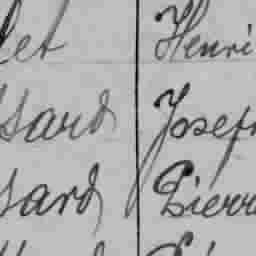 let Henri
ssard Josep
sard Pierr